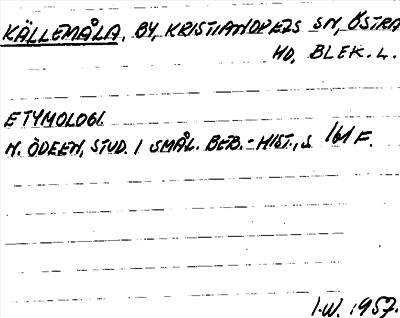 KÄLLEMÅLA, BY, KRISTIANOPELS SN, ÖSTRA
HD, BLEK. L.
ETYMOLOGI.
N. ÖDEEN, STUD. I SMÅL. BEB.-HIST., S. 161 F.
I.W. 1957.